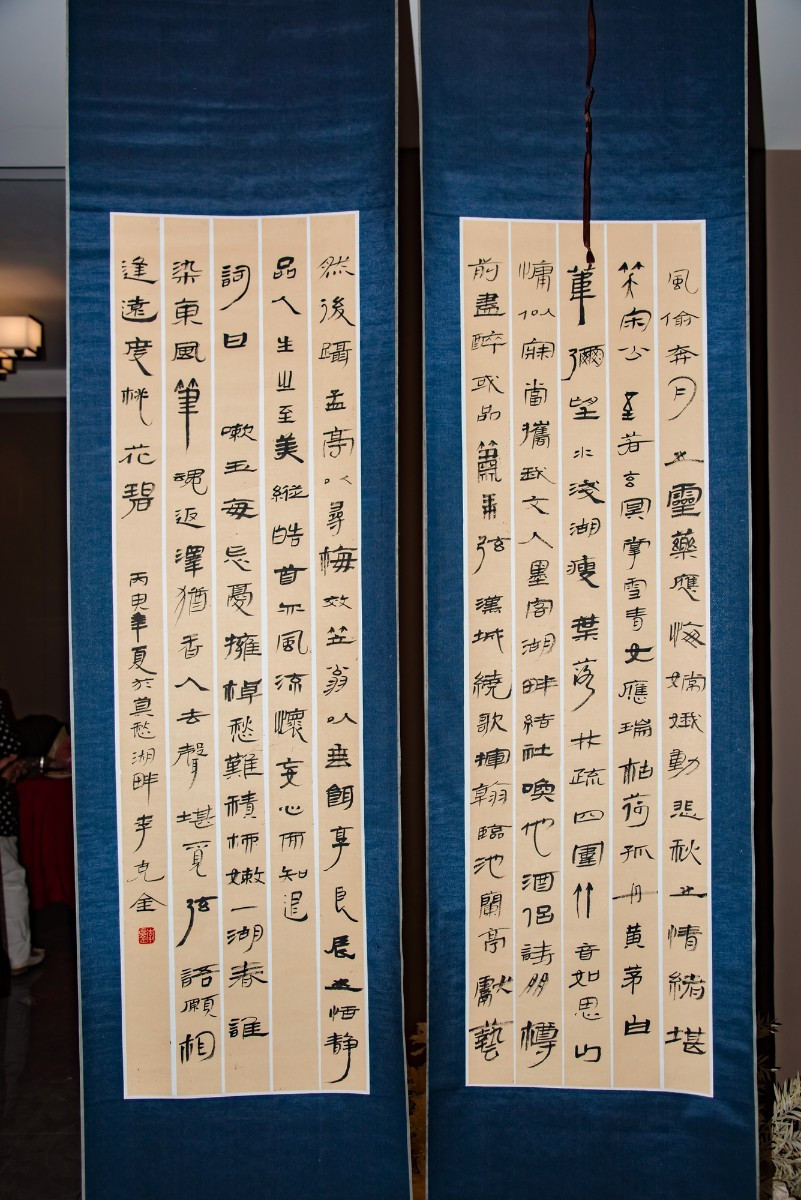 風偷奔月之靈藥應悔嫦娥動悲秋之情緒堪
笑宋公至若玄冥掌雪青女應瑞枯荷孤舟黃茅白
葦彌望水淺湖瘦葉落林疏四圍竹音如思山
慵似寐當攜文人墨客湖畔結社喚他酒侶詩朋樽
前盡醉或品簫弄弦漢城繞歌揮翰臨池蘭亭獻藝
然後躡孟亭以尋梅效笠翁以垂餌享良辰之恬靜
品人生之至美縱皓首而風流懷心而知
詞曰 嗽玉每忘憂擁棹愁難積柳嫩一湖春誰
染東風筆魂返澤猶香人去聲堪覓弦語願相
逢遠度桃花碧 丙申年夏於莫愁湖畔 李克全